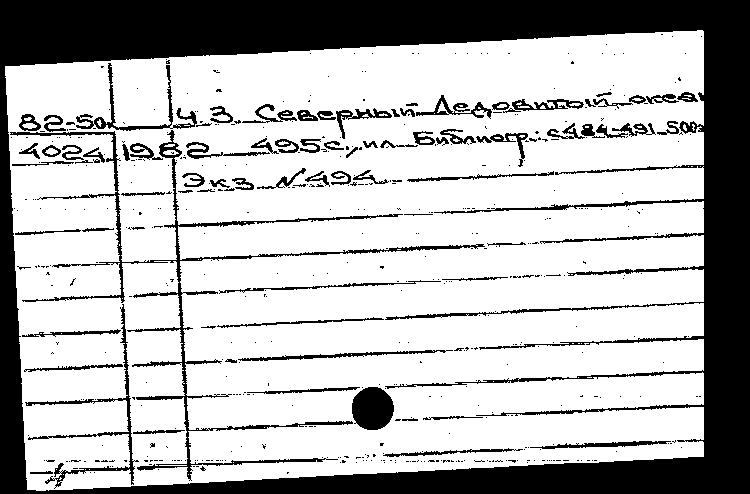 82-5о. Ч 3 Северный Ледовитый океан
4024 1982 495с., ил Библиогр.: с 484-491 500э
Экз №494